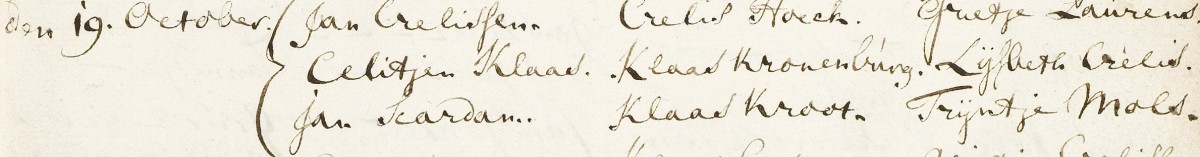 den 19. October. Jan Crelissen. Crelis Hoeck. Grietje Laurens.
Celitjen Klaas. Klaas Kronenburg. Lijsbeth Crelis.
Jan Scardam. Klaas Kroot. Trijntje Mols.